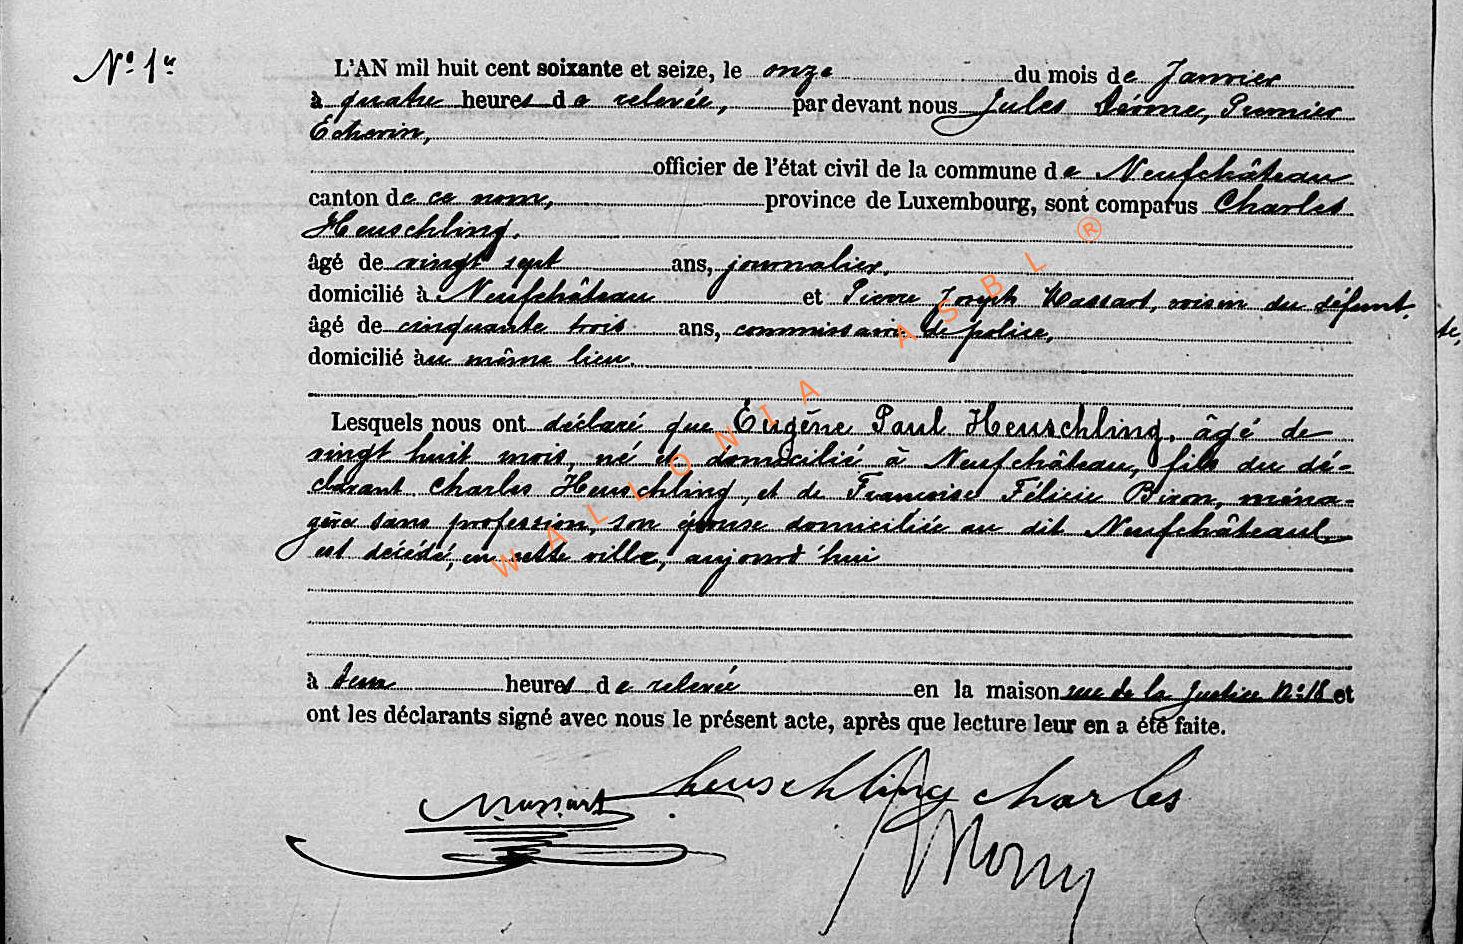 N° 1er
L'AN mil huit cent soixante et seize, le onze du mois de Janvier
à quatre heures de relevée, par devant nous Jules Premier
Echevin,
officier de l'état civil de la commune de Neufchâteau
canton de ce nom, province de Luxembourg, sont comparus Charles
Heuschling,
âgé de vingt sept ans, journalier,
domicilié à Neufchâteau et Pierre Joseph Massart, voisin du défunt,
âgé de cinquante trois ans, commissaire de police,
domicilié au même lieu.
Lesquels nous ont déclaré que Eugène Paul Heuschling, âgé de
vingt huit mois, né et domicilié à Neufchâteau, fils du dé-
clarant Charles Heuschling, et de Françoise Félicie Biron, ména-
gère sans profession, son épouse domiciliée au dit Neufchâteau
est décédé, en cette ville, aujourd'hui
à deux heures de relevée en la maison rue de la Justice N° 18 et
ont les déclarants signé avec nous le présent acte, après que lecture leur en a été faite.
Massart heuschling charles
WALLONIA ASBL ®
te,